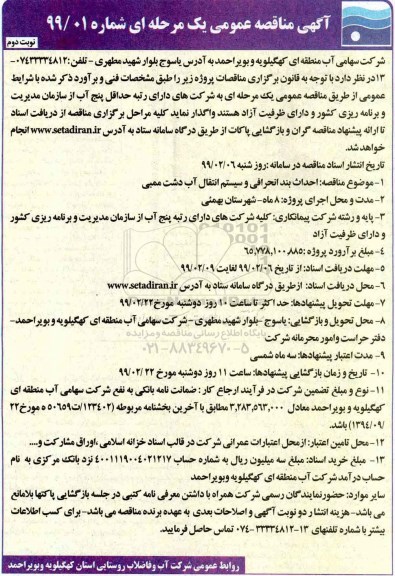 آگهی مناقصه عمومی یک مرحله ای شماره ۹۹/۰۱
نوبت دوم
شرکت سهامی آب منطقه ای کهگیلویه و بویراحمد به آدرس یاسوج بلوار شهید مطهری - تلفن: ۰۷۴۳۳۳۴۸۱۲-
۱۳ در نظر دارد با توجه به قانون برگزاری مناقصات پروژه زیر را طبق مشخصات فنی و برآورد ذکر شده با شرایط
عمومی از طریق مناقصه عمومی یک مرحله ای به شرکت های دارای رتبه حداقل پنج آب از سازمان مدیریت
و برنامه ریزی کشور و دارای ظرفیت آزاد هستند واگذار نماید کلیه مراحل برگزاری مناقصه از دریافت اسناد
تا ارائه پیشنهاد مناقصه گران و بازگشایی پاکات از طریق درگاه سامانه ستاد به آدرس www.setadiran.ir انجام
خواهد شد.
تاریخ انتشار اسناد مناقصه در سامانه: روز شنبه ۹۹/۰۲/۰۶
۱-موضوع مناقصه: احداث بند انحرافی و سیستم انتقال آب دشت ممبی
۲-مدت و محل اجرای پروژه: ۸ ماه- شهرستان بهمئی
۳- پایه و رشته شرکت پیمانکاری: کلیه شرکت های دارای رتبه پنج آب از سازمان مدیریت و برنامه ریزی کشور
و دارای ظرفیت آزاد
۴-مبلغ برآورد پروژه: ۶۵,۷۷۸,۱۰۰,۸۸۵
۵-مهلت دریافت اسناد: از تاریخ ۹۹/۰۲/۰۶ لغایت ۹۹/۰۲/۰۹
۶- محل دریافت اسناد: از طریق درگاه سامانه ستاد به آدرس www.setadiran.ir
۷- مهلت تحویل پیشنهادها: حداکثر تا ساعت ۱۰ روز دوشنبه مورخ ۹۹/۰۲/۲۲
۸- محل تحویل و بازگشایی: یاسوج - بلوار شهید مطهری - شرکت سهامی آب منطقه ای کهگیلویه و بویراحمد-
دفتر حراست و امور محرمانه شرکت
۹- مدت اعتبار پیشنهادها: سه ماه شمسی
۱۰- تاریخ و زمان بازگشایی پیشنهادها: ساعت ۱۱ روز دوشنبه مورخ ۹۹/۰۲/۲۲
۱۱- نوع و مبلغ تضمین شرکت در فرآیند ارجاع کار: ضمانت نامه بانکی به نفع شرکت سهامی آب منطقه ای
کهگیلویه و بویراحمد معادل ۳,۲۸۳,۵۶۳,۰۰۰ مطابق با آخرین بخشنامه مربوطه (۱۲۳۴۰۲/ت ۵۰۶۵۹ ه مورخ ۲۲
/۱۳۹۴/۰۹) باشد.
۱۲-محل تامین اعتبار: از محل اعتبارات عمرانی شرکت در قالب اسناد خزانه اسلامی، اوراق مشارکت و....
۱۳- مبلغ خرید اسناد: مبلغ سه میلیون ریال به شماره حساب ۴۰۰۱۱۱۹۰۰۴۰۲۱۲۱۷ نزد بانک مرکزی به نام
حساب درآمد شرکت آب منطقه ای کهگیلویه و بویراحمد
سایر موارد: حضور نمایندگان رسمی شرکت همراه با داشتن معرفی نامه کتبی در جلسه بازگشایی پاکتها بلامانع
می باشد- هزینه انتشار دو نوبت آگهی و اصلاحات بعدی به عهده برنده مناقصه می باشد- برای کسب اطلاعات
بیشتر با شماره تلفنهای ۱۳-۳۳۳۳۴۸۱۲-۰۷۴ تماس حاصل فرمایید.
روابط عمومی شرکت آب و فاضلاب روستایی استان کهگیلویه و بویراحمد
۰۲۱-۸۸۳۴۹۶۷۰-۵